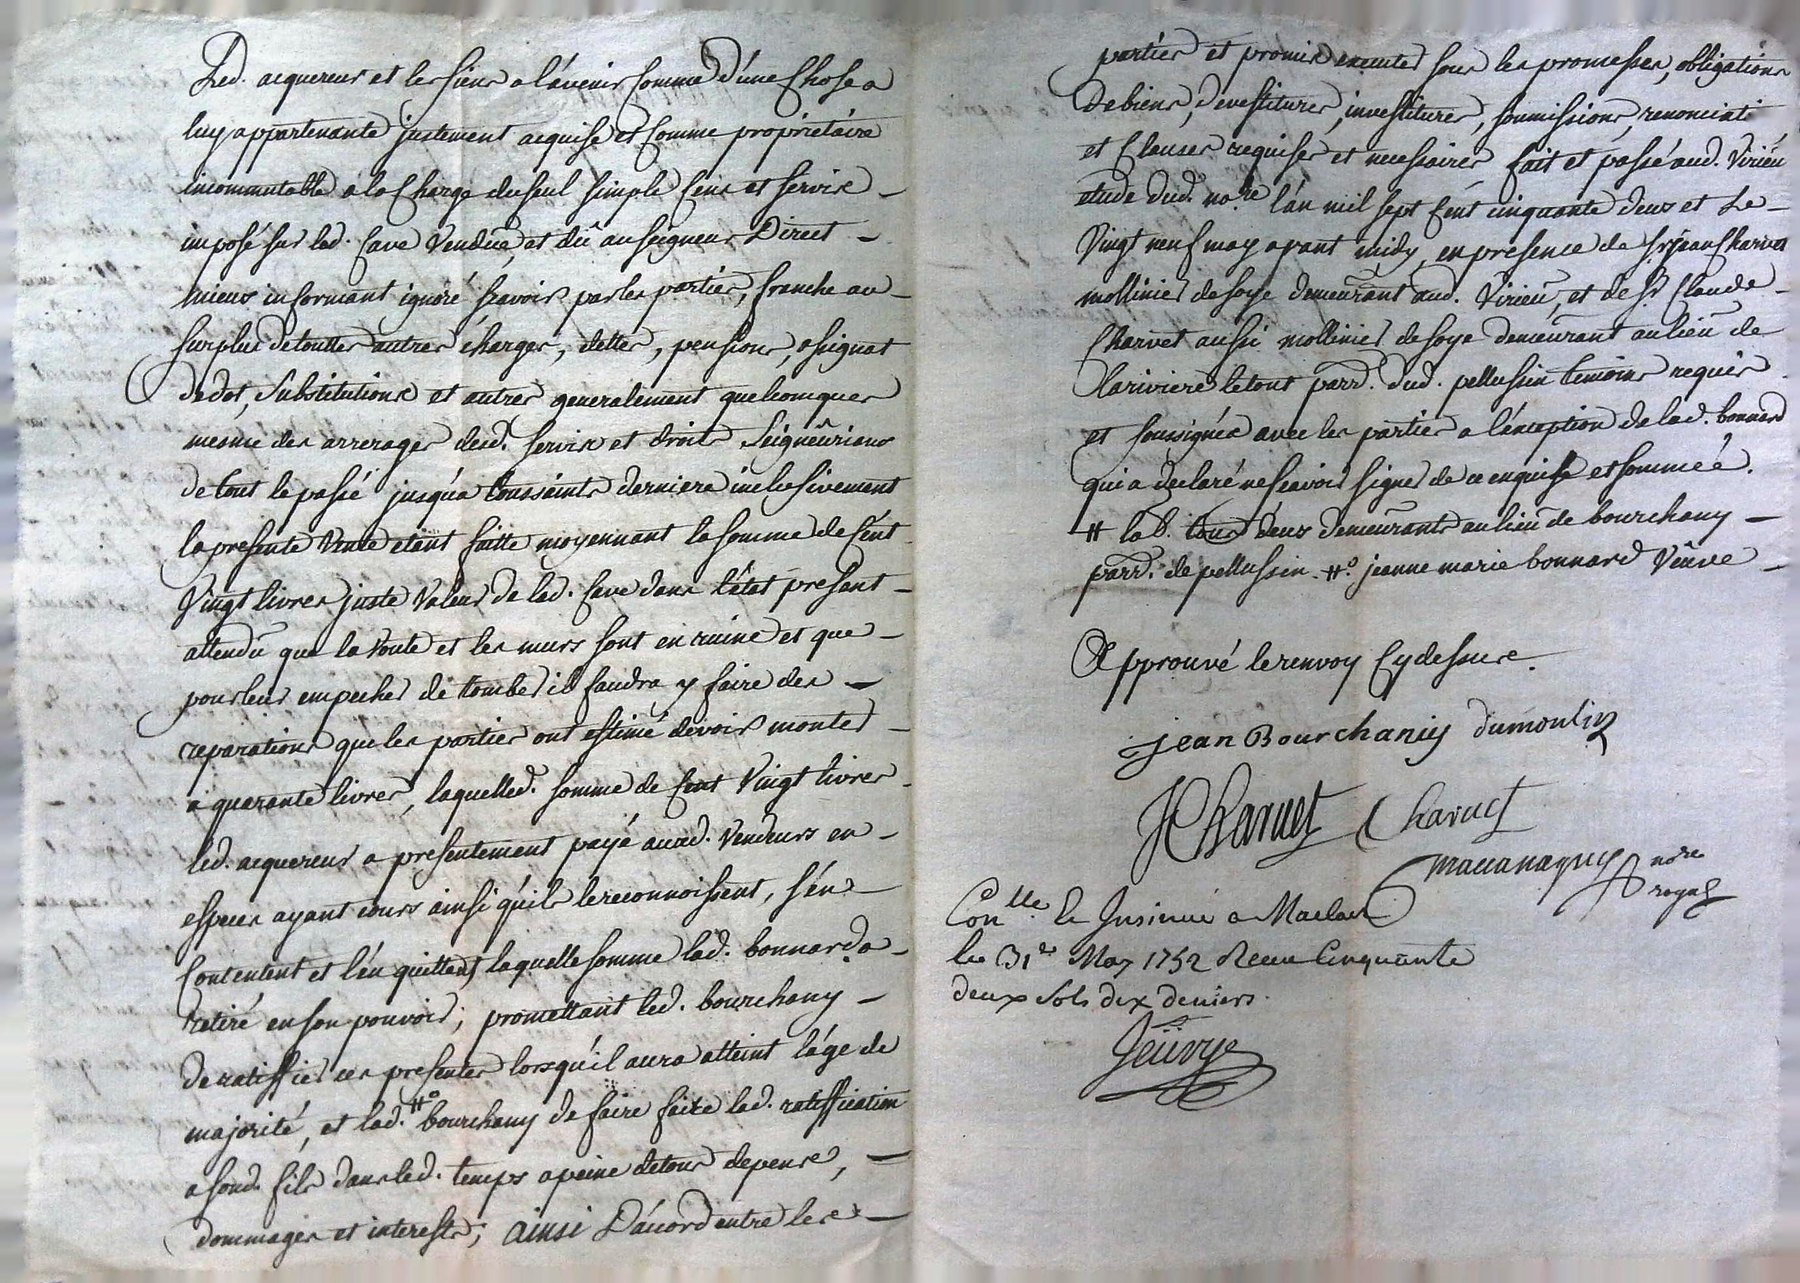 Led. acquereur et les siens a l'avenir comme d'une chose a
luy appartenante justement acquise et comme proprietaire
incommutable a la charge du seul simple cens et servis
imposé sur lad. cave vendue, et dû au seigneur Direct
mieux informant ignoré scavoir par les parties, franche au
surplus de touttes autres charges, dettes, pensions, assignat
de dot, substitutions et autres generalement quelconques
mesme des arrerages desd. servis et droits seigneuriaux
de tout le passé jusqu'a toussaints derniere inclusivement
la presente vente etant faitte moyennant la somme de cent
vingt livres juste valeur de lad. cave dans l'état present
attendu que la voute et les murs sont en ruine et que
pour leur empecher de tomber il faudra y faire des
reparations que les parties ont estimé devoir monter
a quarante livres, laquelled. somme de cent vingt livres
led. acquereur a presentement payé auxd. vendeurs en
especes ayant cours ainsi qu'ils le reconnoissent, s'en
contentent et l'en quittent laquelle somme lad. bonnard a
retiré en son pouvoir; promettant led. bourchany
de ratiffier ces presentes lorsqu'il aura atteint l'age de
majorité, et lad. #° bourchany de faire faire lad. ratiffication
a sond. fils dans led. temps a peine de tous depens,
dommages et interests; ainsi D'acord entre les
parties et promis executer sous les promesses, obligations
de biens, devestitures, investitures, soumissions, renonciati
et clauses requises et necessaires fait et passé aud. Virieu
etude dud. no.re l'an mil sept cent cinquante deux et Le
Vingt neuf may avant midy, en presence de Sr. jean Charvet
mollinier de soye demeurant aud. Virieu, et de Sr. Claude
Charvet aussi mollinier de soye demeurant au lieu de
la riviere le tout parr. dud. pellussin temoins requis
et soussignés avec les parties a l'exception de lad. bonnard
qui a declaré ne scavoir signer de ce enquise et sommée.
# tous deux demeurants au lieu de bourchany
parr. de pellussin. #° jeanne marie bonnard veuve
Approuvé le renvoy cydessus.
jean Bourchaniy dumoulin
JCharvet Charvet
no.re
royal
Con.lle & Insinué a Maclas
le 31e. May 1752 Receu Cinquante
deux Sols dix deniers.